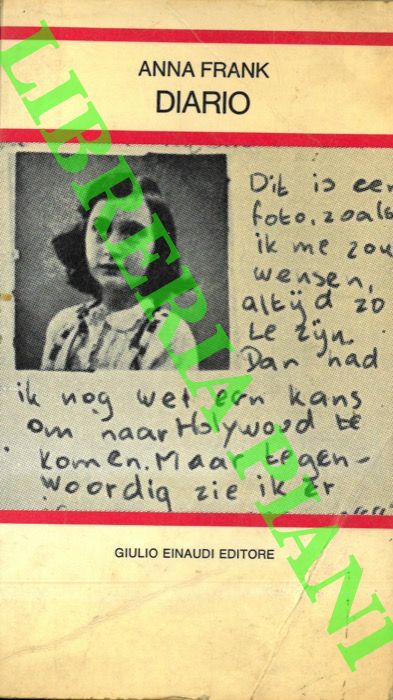 ANNA FRANK
DIARIO
Dit is een
foto, zoals
ik me zou
wensen,
altijd zo
te zijn.
Dan had
ik nog wel een kans
om naar Holywood te
komen. Maar tegen-
woordig zie ik er
GIULIO EINAUDI EDITORE
LIBRERIA PIANI